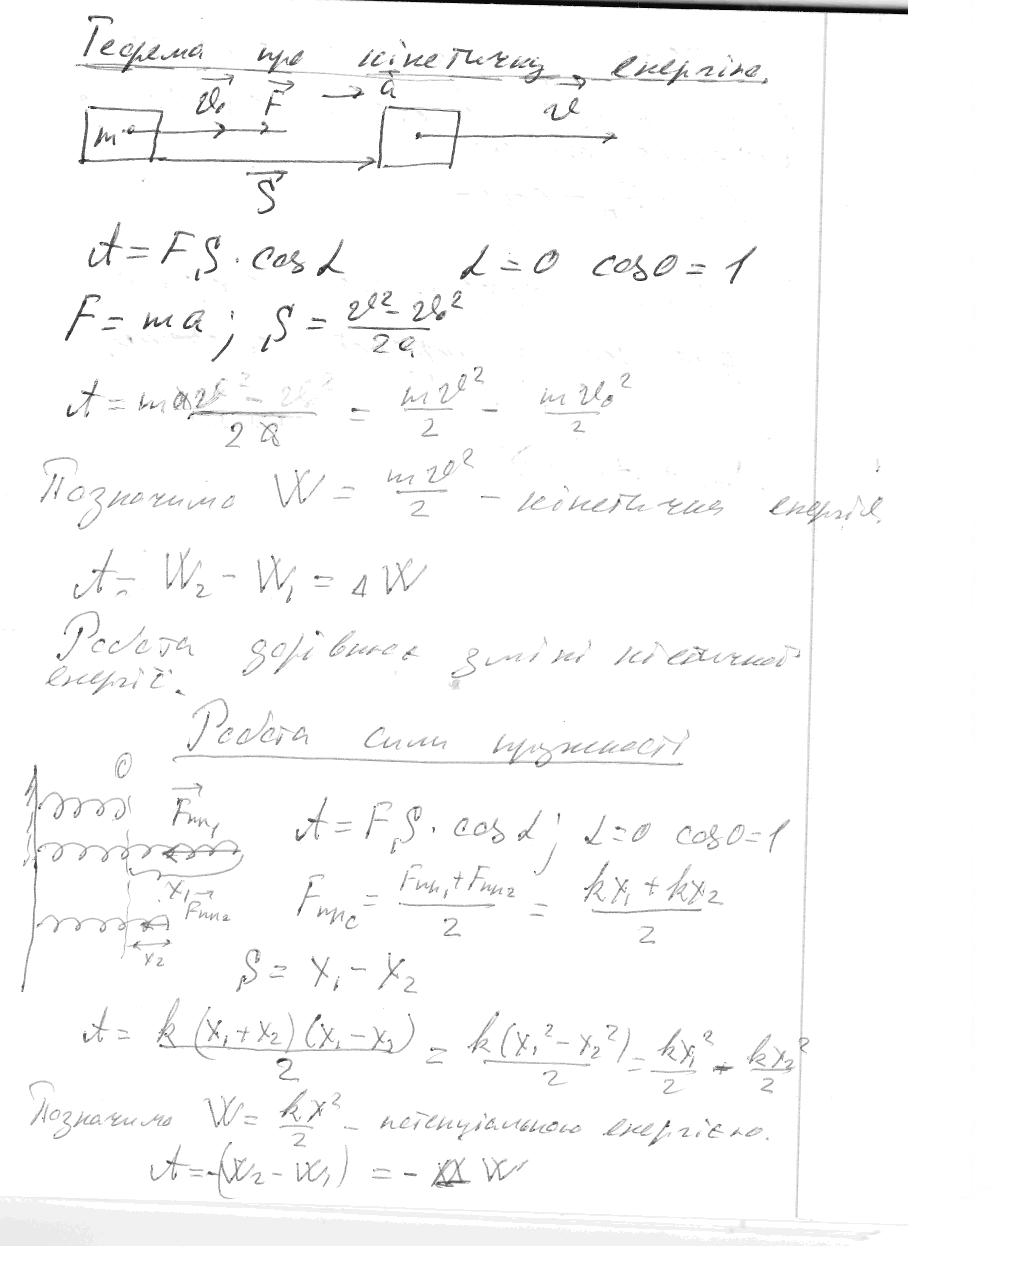 Теорема про кінетичну енергію.
v₀ F a v
m
S
A = F S · cos α   α = 0   cos 0 = 1
F = ma ; S = (v² − v₀²)/2a
A = ma (v² − v₀²)/2a = mv²/2 − mv₀²/2
Позначимо W = mv²/2 – кінетична енергія.
A = W₂ − W₁ = ΔW
Робота дорівнює зміні кінетичної
енергії.
Робота сили пружності
0
Fпр₁
A = F S · cos α ; α = 0   cos 0 = 1
x₁
Fпр₂
Fпр с = (Fпр₁ + Fпр₂)/2 = (kx₁ + kx₂)/2
x₂
S = x₁ − x₂
A = k(x₁ + x₂)(x₁ − x₂)/2 = k(x₁² − x₂²)/2 = kx₁²/2 − kx₂²/2
Позначимо W = kx²/2 – потенціальною енергією.
A = −(W₂ − W₁) = −ΔW